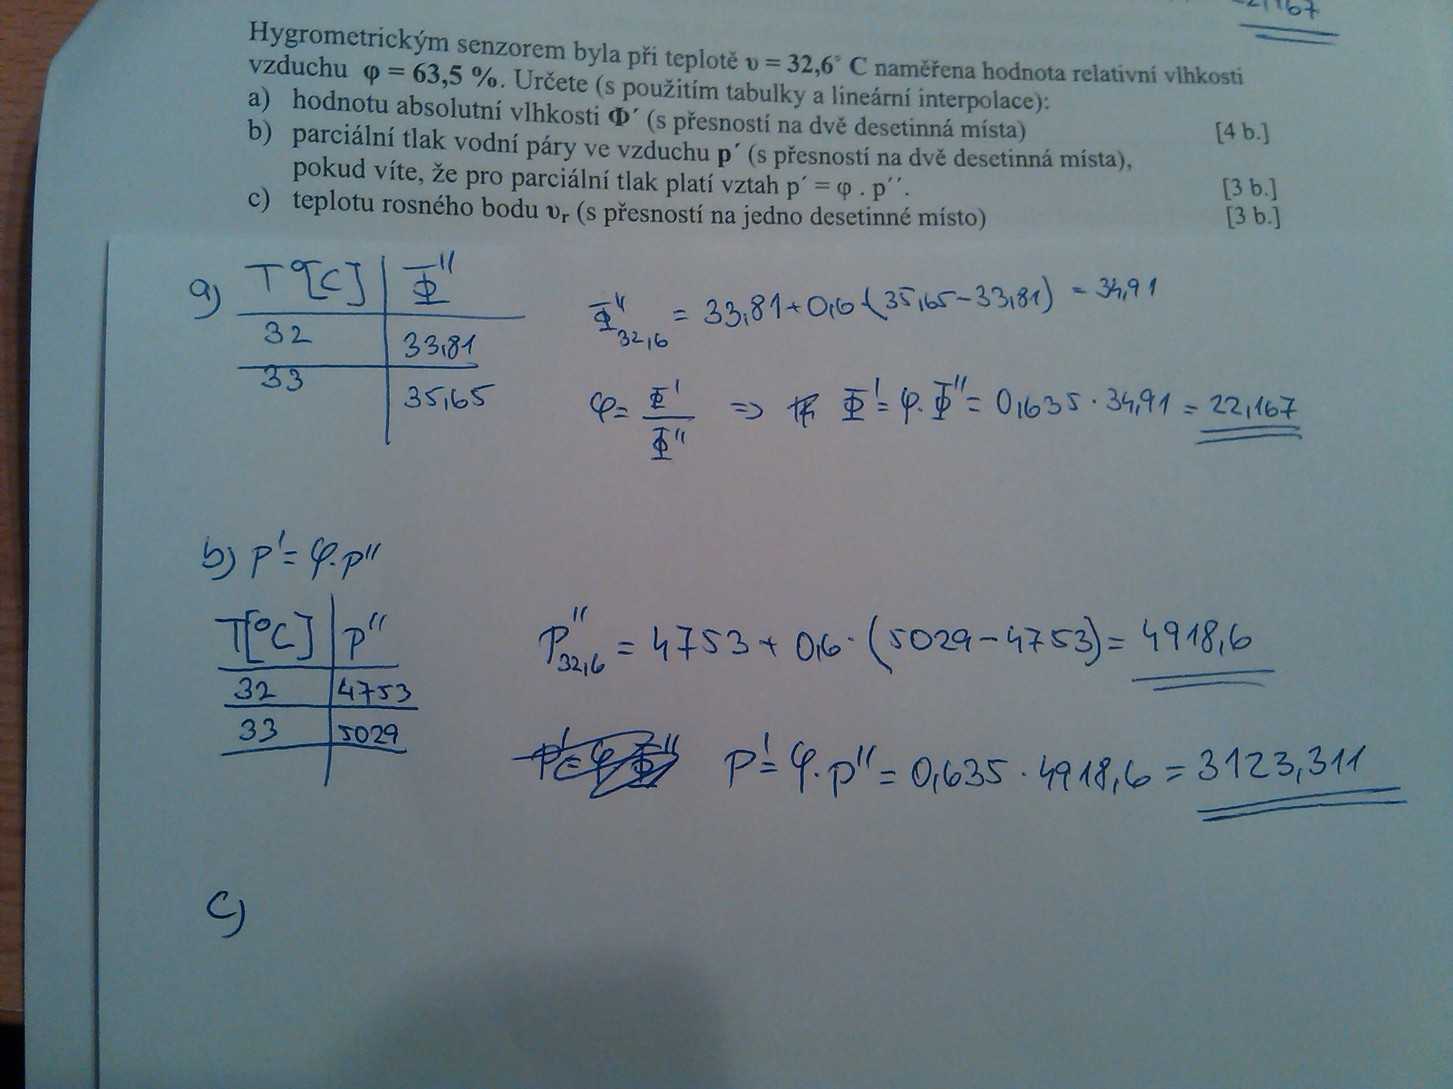 21,167
Hygrometrickým senzorem byla při teplotě υ = 32,6° C naměřena hodnota relativní vlhkosti
vzduchu φ = 63,5 %. Určete (s použitím tabulky a lineární interpolace):
a) hodnotu absolutní vlhkosti Φ´ (s přesností na dvě desetinná místa) [4 b.]
b) parciální tlak vodní páry ve vzduchu p´ (s přesností na dvě desetinná místa),
pokud víte, že pro parciální tlak platí vztah p´ = φ . p´´. [3 b.]
c) teplotu rosného bodu υr (s přesností na jedno desetinné místo) [3 b.]
a) T[°C] Φ''
32 33,81
33 35,65
Φ''32,6 = 33,81 + 0,6 · (35,65 - 33,81) = 34,91
φ = Φ'/Φ'' => Φ' = φ · Φ'' = 0,635 · 34,91 = 22,167
b) p' = φ · p''
T[°C] p''
32 4753
33 5029
P''32,6 = 4753 + 0,6 · (5029 - 4753) = 4918,6
P' = φ · p'' = 0,635 · 4918,6 = 3123,311
c)